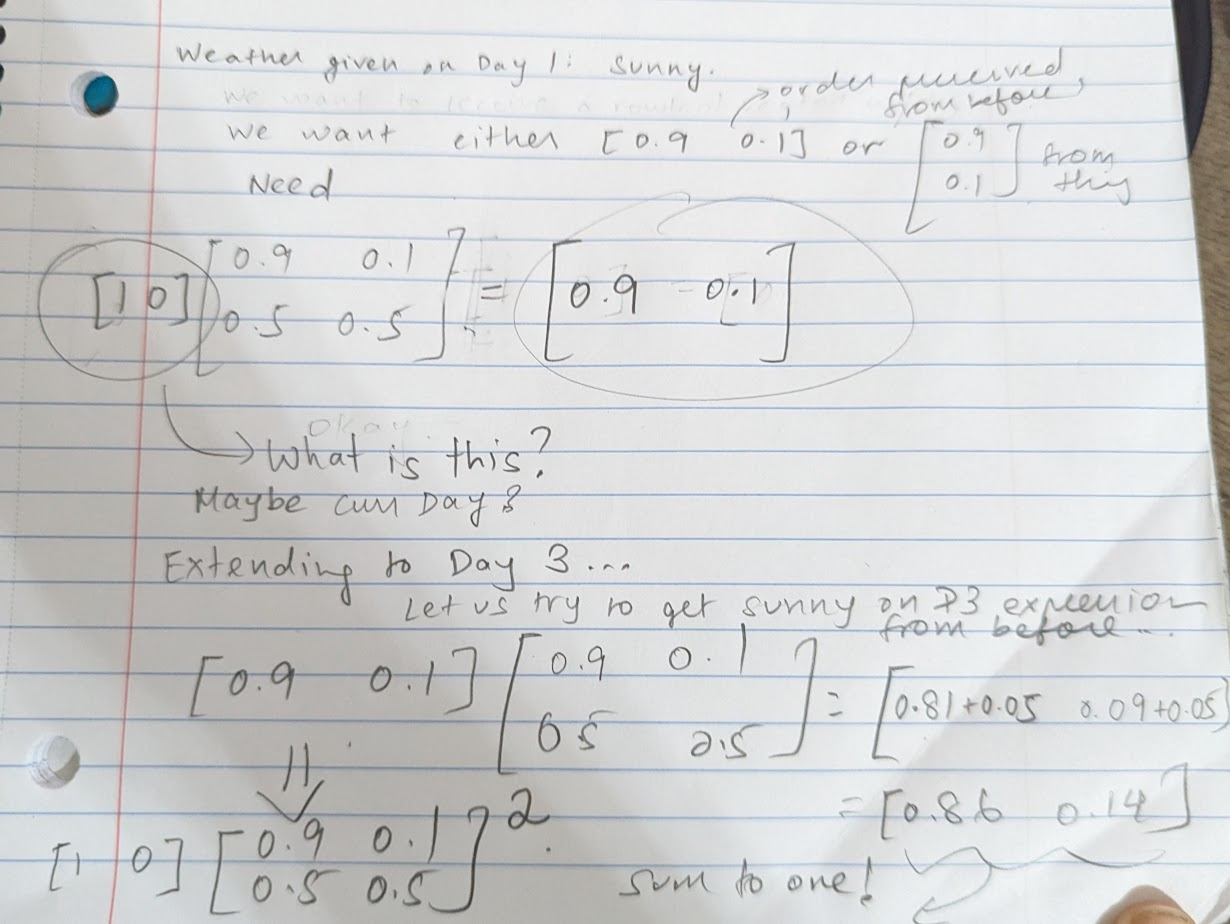 Weather given on Day 1: Sunny.
order received from before,
We want either [0.9 0.1] or [0.9 0.1] from this
Need
[1 0] [0.9 0.1
0.5 0.5] = [0.9 0.1]
Okay
What is this?
Maybe curr Day?
Extending to Day 3...
Let us try to get sunny on D3 expression from before...
[0.9 0.1] [0.9 0.1
0.5 0.5] = [0.81+0.05 0.09+0.05]
= [0.86 0.14]
[1 0] [0.9 0.1
0.5 0.5]² .
sum to one!